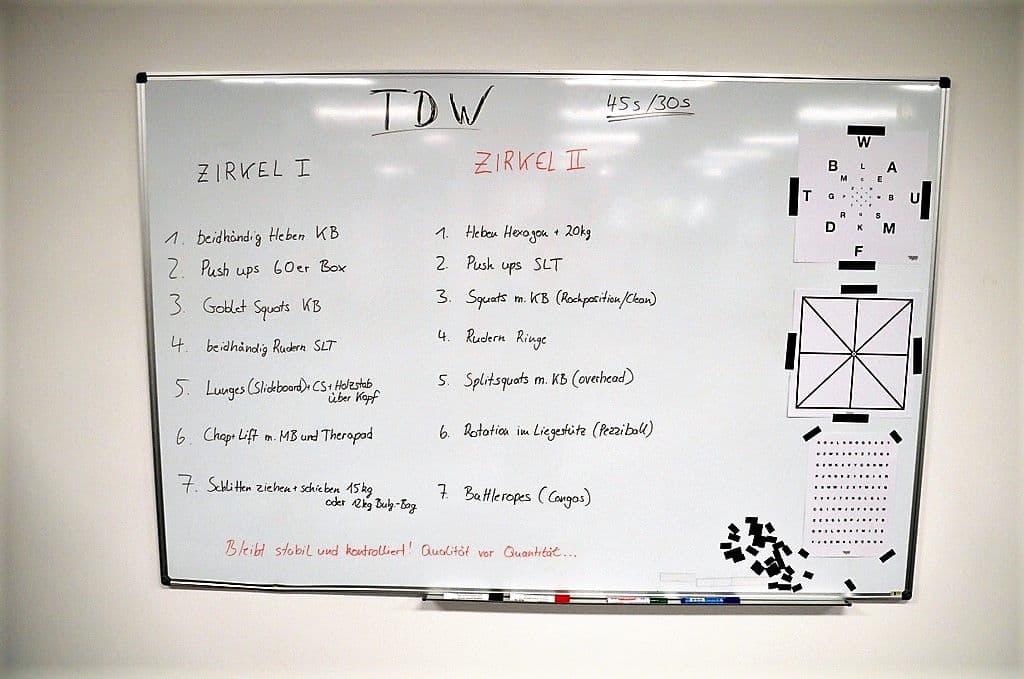 TDW
45s/30s
ZIRKEL I
1. beidhändig Heben KB
2. Push ups 60er Box
3. Goblet Squats KB
4. beidhändig Rudern SLT
5. Lunges (Slideboard) + CS + Holzstab
über Kopf
6. Chop + Lift m. MB und Therapad
7. Schlitten ziehen + schieben 15kg
oder 12kg Bulg.-Bag
ZIRKEL II
1. Heben Hexagon + 20kg
2. Push ups SLT
3. Squats m. KB (Rackposition/Clean)
4. Rudern Ringe
5. Splitsquats m. KB (overhead)
6. Rotation im Liegestütz (Pezziball)
7. Battleropes (Congos)
Bleibt stabil und kontrolliert! Qualität vor Quantität...
W
B L A
M E
T G B U
R S
D K M
F